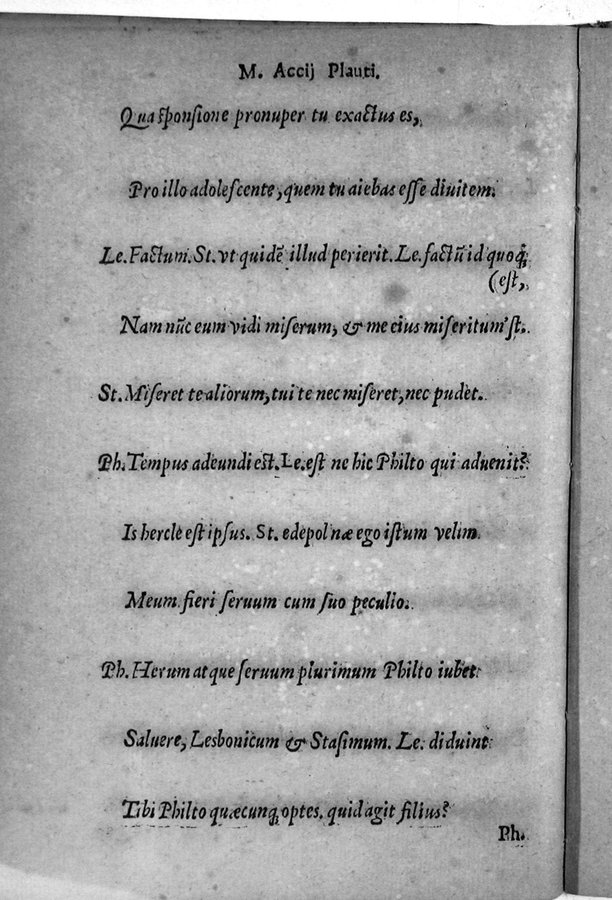 M. Accij Plauti.
Qua sponsione pronuper tu exactus es,
Pro illo adolescente, quem tu aiebas esse diuitem.
Le. Factum. St. vt quidẽ illud perierit. Le. factũ id quoq;
(est,
Nam nũc eum vidi miserum, & me eius miseritum'st.
St. Miseret te aliorum, tui te nec miseret, nec pudet.
Ph. Tempus adeundi est. Le. est ne hic Philto qui aduenit?
Is herclè est ipsus. St. edepol næ ego istum velim
Meum fieri seruum cum suo peculio.
Ph. Herum atque seruum plurimum Philto iubet
Saluere, Lesbonicum & Stasimum. Le. di duint
Tibi Philto quæcunq; optes. quid agit filius?
Ph.